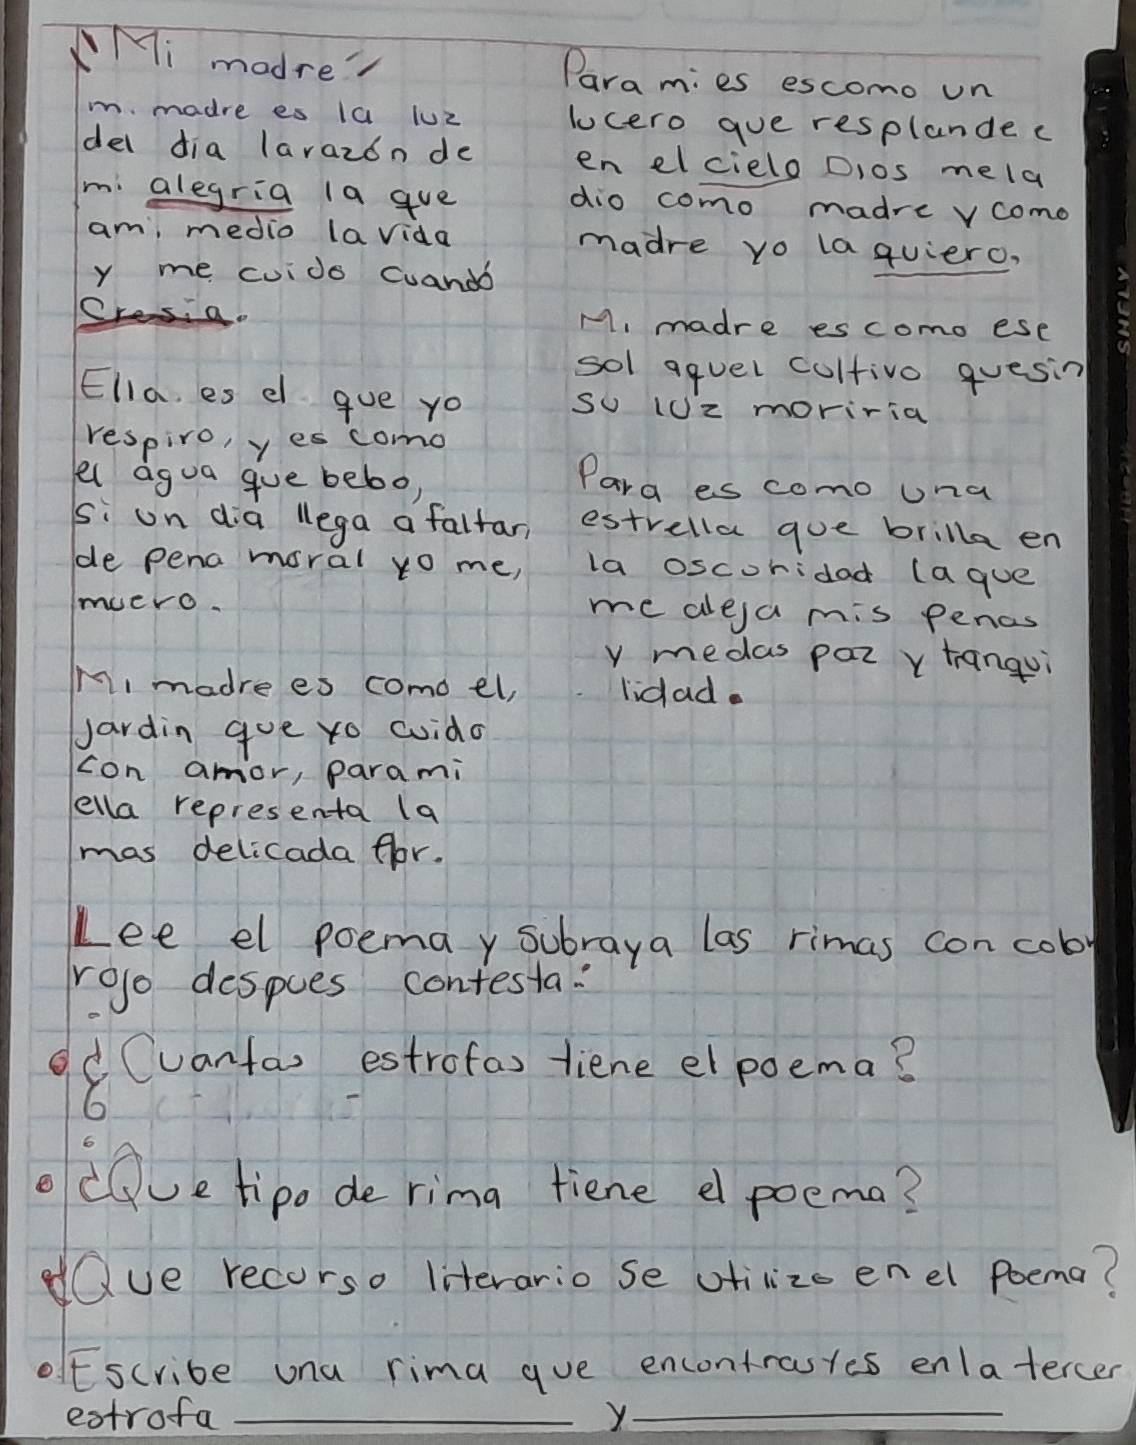 "Mi madre"
mi madre es la luz
del dia larazón de
mi alegria la que
ami medio la vida
y me cuido cuandó
Cresia.
Ella es el que yo
respiro, y es como
el agua que bebo,
si un dia llega a faltar,
de pena moral yo me,
muero.
Mi madre es como el,
jardin que yo cuido
con amor, para mi
ella representa la
mas delicada flor.
Para mi es escomo un
lucero que resplandec
en el cielo Dios mela
dio como madre y como
madre yo la quiero.
Mi madre es como ese
sol aquel cultivo quesin
su luz moriria
Para es como una
estrella que brilla en
la oscuridad la que
me aleja mis penas
y medas paz y tranqui
lidad.
Lee el poema y subraya las rimas con color
rojo despues contesta:
¿Cuantas estrofas tiene el poema?
6
¿Que tipo de rima tiene el poema?
¿Que recurso literario se utilizo en el poema?
Escribe una rima que encontrastes en la tercer
estrofa ____________ y ____________